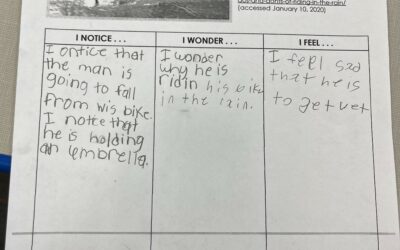 dos-and-donts-of-riding-in-the-rain/
(accessed January 10, 2020)
I NOTICE . . .
I WONDER . . .
I FEEL . . .
I ontice that
the man is
going to fall
from wis bike.
I notce that
he is holding
an umbrella.
I wonder
why he is
ridin his bike
in the rain.
I feel sad
that he is
to get vet